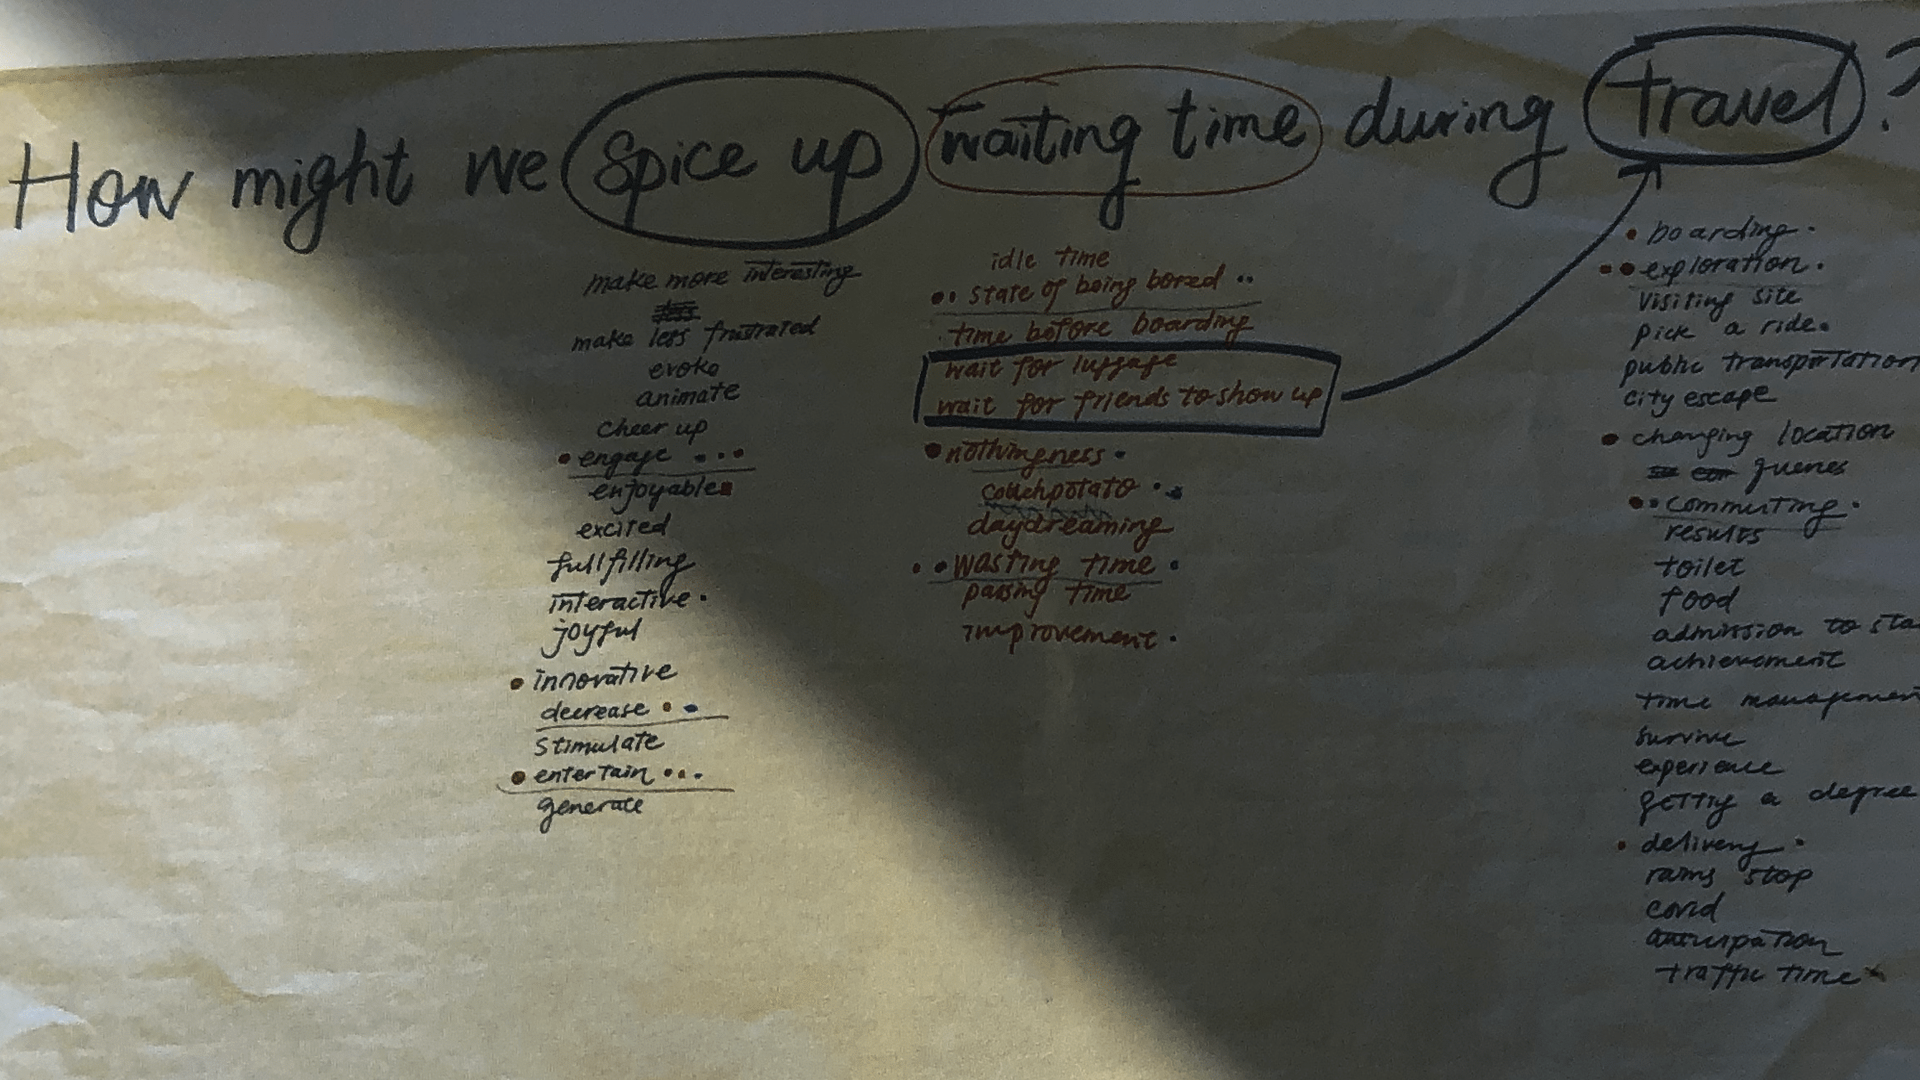 How might we spice up waiting time during travel?
make more interesting
make less frustrated
evoke
animate
cheer up
engage
enjoyable
excited
fullfilling
interactive
joyful
innovative
decrease
stimulate
entertain
generate
idle time
state of being bored
time before boarding
wait for luggage
wait for friends to show up
nothingness
couchpotato
daydreaming
wasting time
passing time
improvement
boarding
exploration
visiting site
pick a ride
public transportation
city escape
changing location
queues
commuting
results
toilet
food
admission to sta
achievement
time managemen
survive
experience
getting a degree
delivery
rains stop
covid
anticipation
traffic time